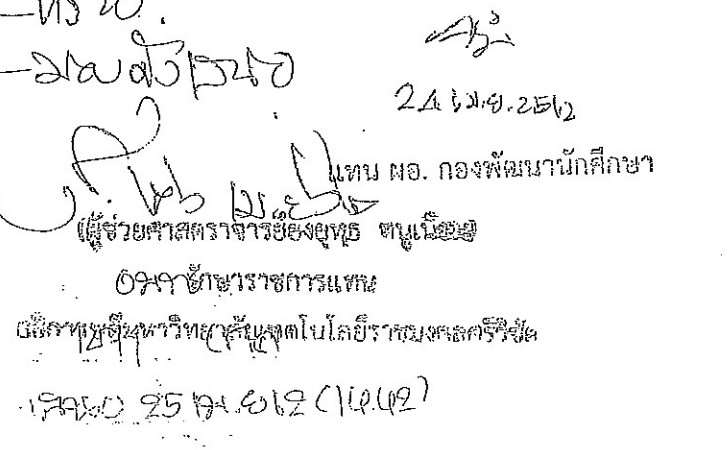 -ทราบ.
-มอบดังเสนอ
24 เม.ย. 2562
แทน ผอ. กองพัฒนานักศึกษา
(ผู้ช่วยศาสตราจารย์ยงยุทธ หนูเนียม)
รักษาราชการแทน
อธิการบดีมหาวิทยาลัยเทคโนโลยีราชมงคลศรีวิชัย
25 เม.ย 62 (14.42)